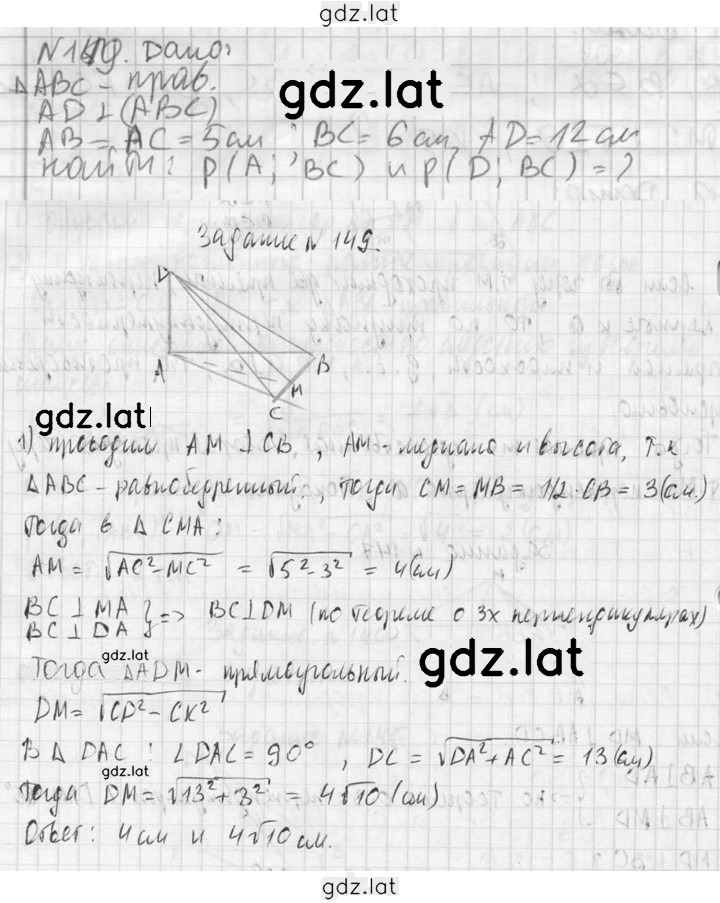 gdz.lat
№149. Дано:
△ABC - прав.
AD ⊥ (ABC)
AB = AC = 5 см; BC = 6 см, AD = 12 см
найти: ρ(A; BC) и ρ(D; BC) = ?
gdz.lat
Задание № 149.
D
A
B
M
C
gdz.lat
1) проводим AM ⊥ CB, AM - медиана и высота, т.к
△ABC - равнобедренный, тогда CM = MB = 1/2 · CB = 3 (см.)
Тогда в △ CMA:
AM = √AC² - MC² = √5² - 3² = 4 (см)
BC ⊥ MA
BC ⊥ DA } => BC ⊥ DM (по теореме о 3х перпендикулярах)
gdz.lat
Тогда △ADM - прямоугольный.
gdz.lat
DM = √CD² - CK²
В △ DAC: ∠DAC = 90°, DC = √DA² + AC² = 13 (см)
gdz.lat
Тогда DM = √13² + 3² = 4√10 (см)
Ответ: 4 см и 4√10 см.
gdz.lat